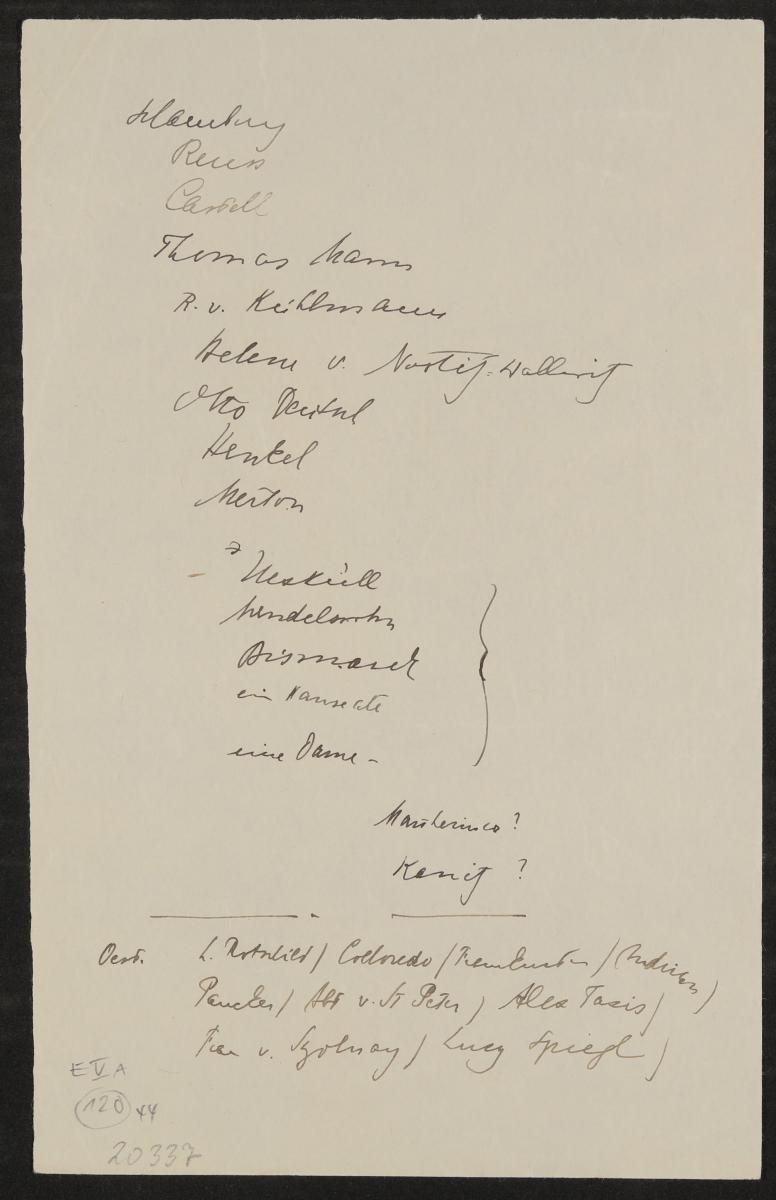 Schaumburg
Reuss
Castell
Thomas Mann
R. v. Kühlmann
Helene v. Nostitz-Wallwitz
Otto
Henkel
Merton
Uexküll
Mendelssohn
Bismarck
ein Hanseate
eine Dame –
?
Kanitz ?
Oest. L. Rothschild / Colloredo / Franckenstein / Andrian /
/ Abt v. St Peter / Alex Taxis /
Frau v. Szolnay / Lucy Spiegl /
E V A
120 44
20337